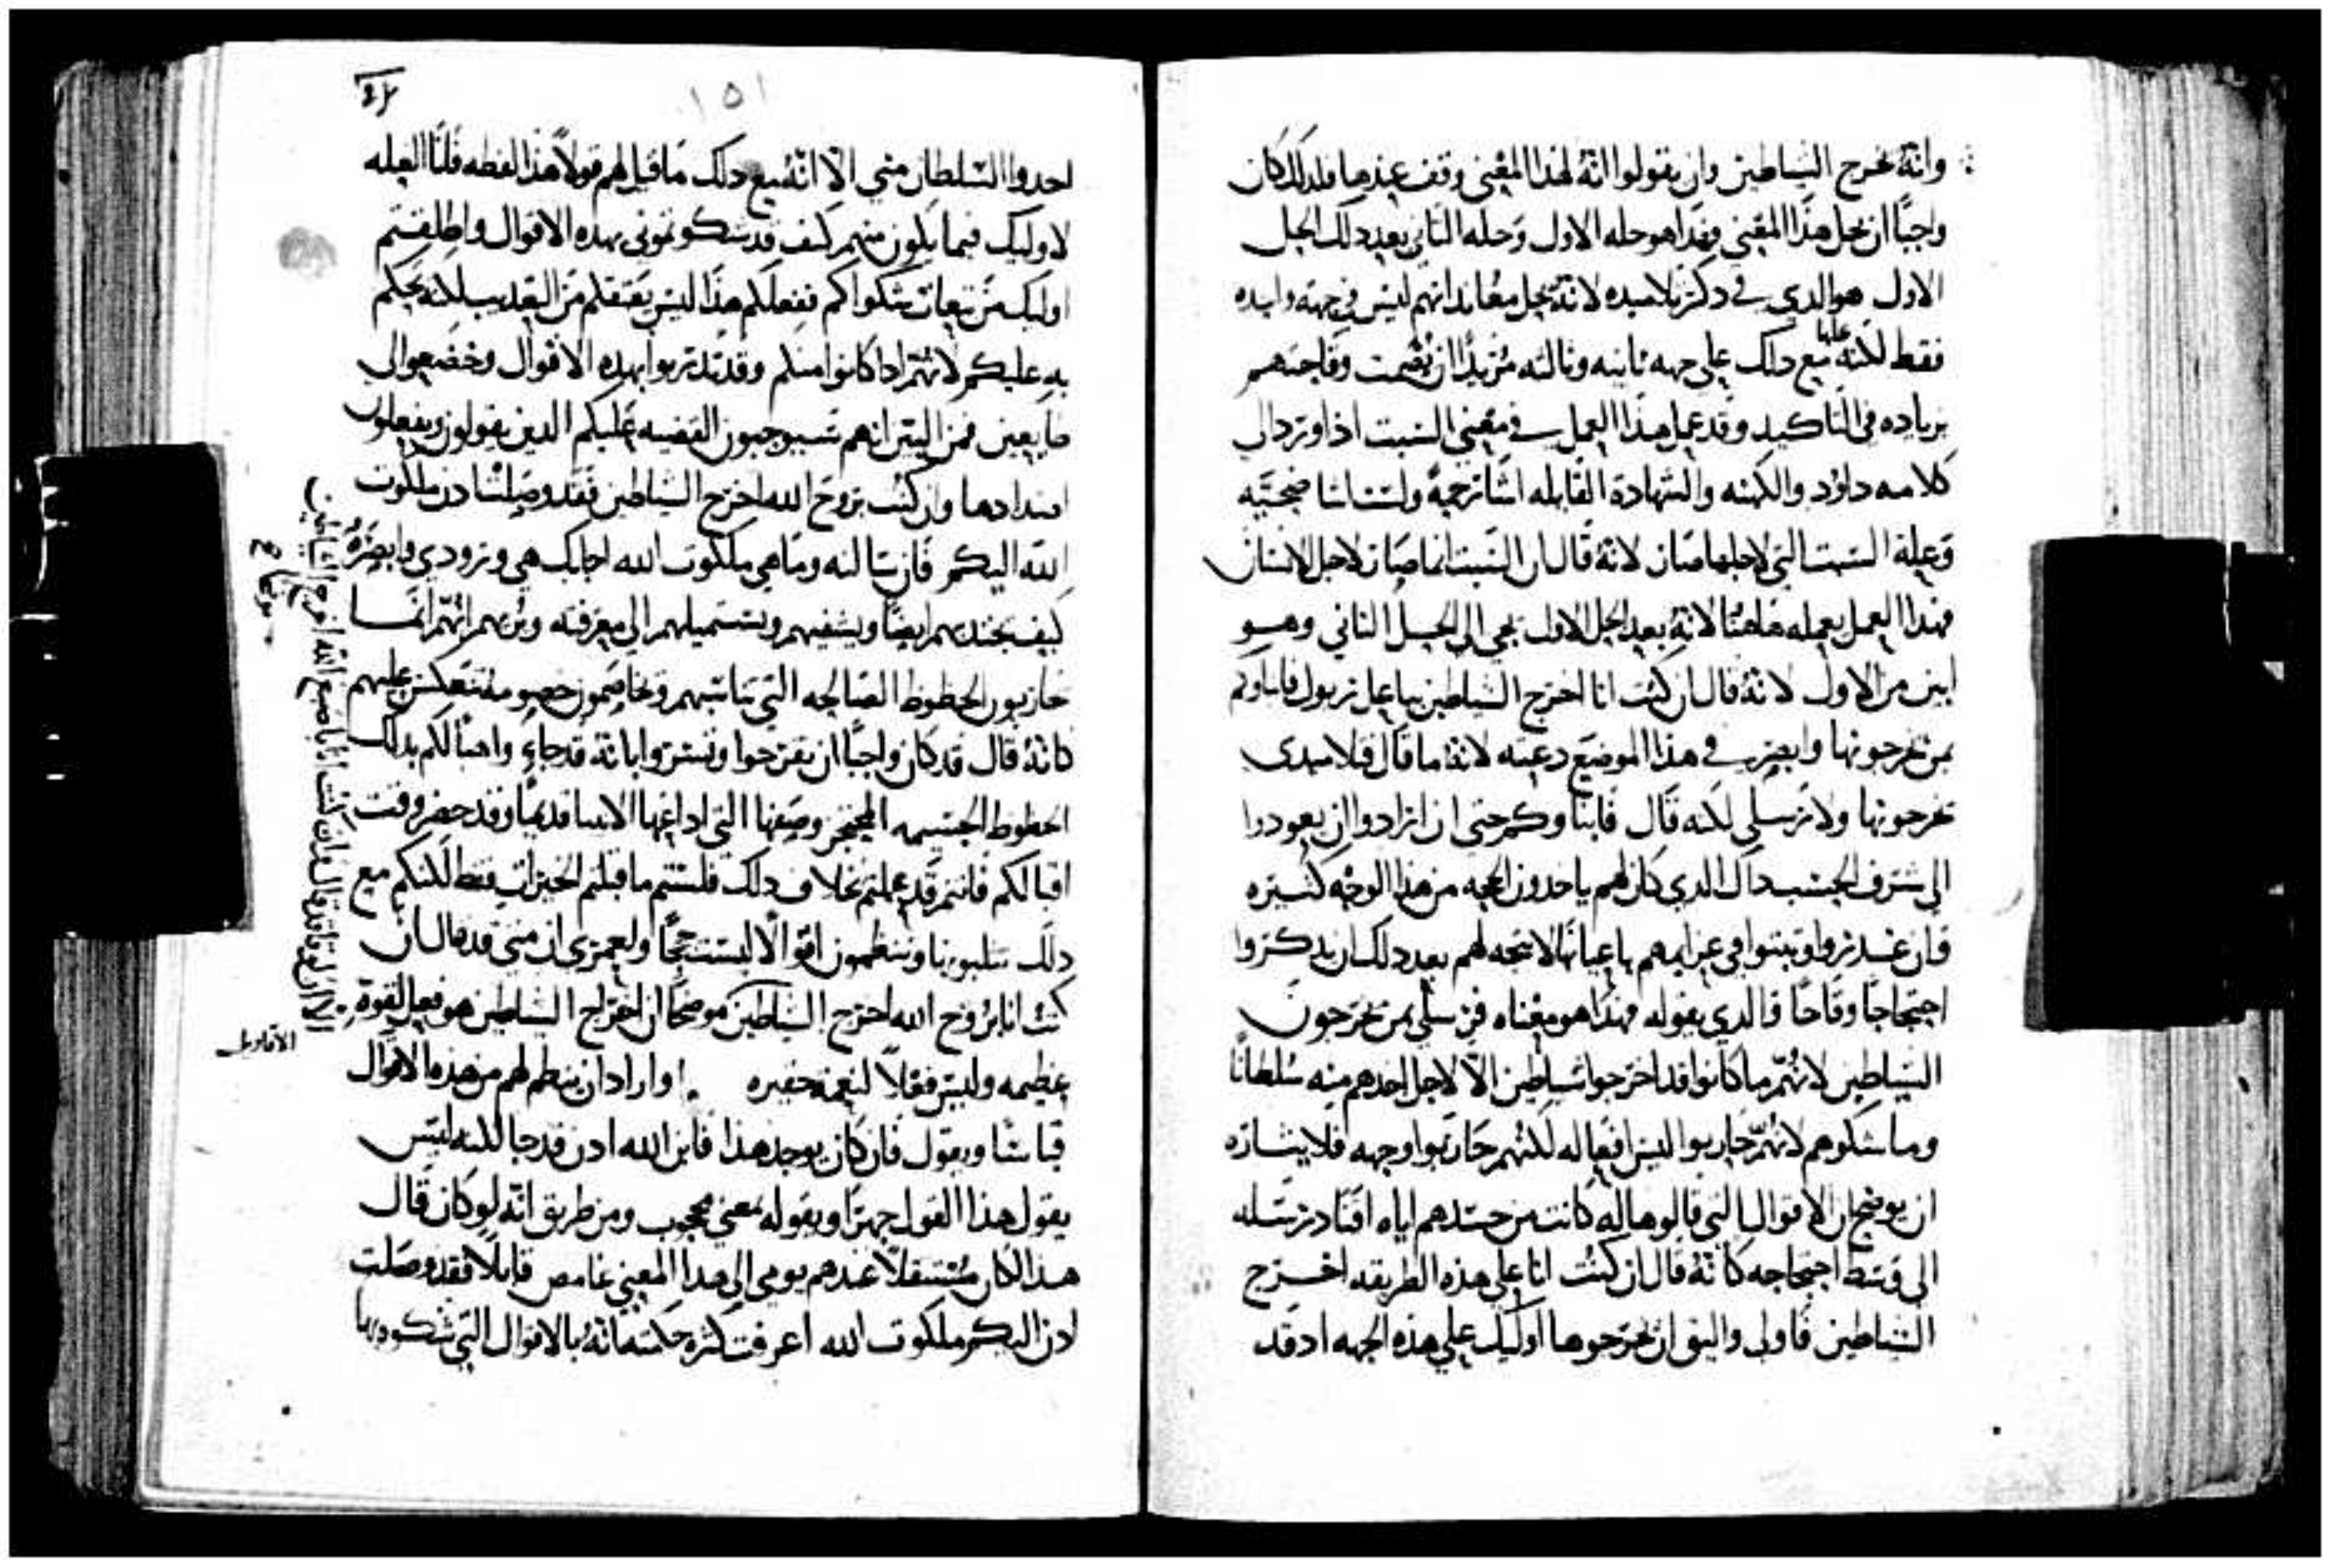 وانه نخرج الشياطين وان يقولوا انه لهذا المعني وقف عندها فلدلك كان
واجبًا ان نحل هذا المعني وهذا هو حله الاول وحله الثاني بعد دلك الحل
الاول هو الدي في دكر تلاميده لانه يحل معاندا لهم ليس في جهه واحده
فقط لكنه مع دلك علي جهه ثانيه وثالثه مزيدًا ان يصمت وقاحتهم
بزياده في التاكيد وقد عمل هذا العمل في معني السبت اذ اورد الي
كلامه داوود والكهنه والشهاده القايله اشا رحمهً ولست اشا ضحيّه
وعلة السبت التي لاجلها صار لانه قال ان السبت انما صار لاجل الانسان
فهدا العمل يعمله هاهنا لانه بعد الحل الاول يجي الي الحل الثاني وهو
ابين من الاول لانه قال ان كنت انا اخرج الشياطين بباعل زبول فابناوكم
بمن يخرجونها وابصر في هذا الموضع دعته لانه ما قال فتلاميدي
يخرجونها ولا رسلي لكنه قال فابناوكم حتي ان ارادوا ان يعودوا
الي شرف الجنس داك الدي كان لهم ياخدون الحجه من هذا الوجه كثيره
فان غدروا وثبتوا في عزايمهم باعيانها لا يتجه لهم بعد دلك ان يدكروا
احتجاجًا وقاحًا فالدي يقوله فهذا هو معناه فرسلي بمن يخرجون
الشياطين لانهم ما كانوا قد اخرجوا شياطين الا لاجل اخدهم منه سلطانًا
وما شكوهم لانهم حاربوا ليس افعاله لكنهم حاربوا وجهه فلايثاره
ان يوضح ان الاقوال التي قالوها له كانت من حسدهم اياه اقتاد رسله
الي وسط احتجاجه كانه قال ان كنت انا علي هذه الطريقه اخرج
الشياطين فاولي واليق ان يخرجوها اوليك علي هذه الجهه اد قد
١٥١
اخدوا السلطان مني الا انه مع دلك ما قيل لهم قولاً هذا لفظه قلنا العله
لاوليك فيما يكون منهم كيف قد شكوتموني بهده الاقوال واطلقتم
اوليك من تبعات شكواكم ففعلكم هذا ليس يعتقكم من التعديب لانه يحكم
به عليكم لانهم ادا كانوا منكم وقد تدربوا بهده الاقوال وخضعوا لي
طايعين فمن البين انهم سيوجبون القضيه عليكم الدين يقولون ويفعلون
اضدادها وان كنت بروح الله اخرج الشياطين فقد وصلت ادن ملكوت
الله اليكم فان سالته وما هي ملكوت الله اجابك هي ورودي وابصره
كيف يجتدبهم ايضًا ويشفيهم ويستميلهم الي معرفته ويريهم انهم انما
حاربون الحظوظ الصالحه التي تناسبهم ويخاصمون خصومه تنعكس عليهم
كانه قال قد كان واجبًا ان تفرحوا وتسروا بانه قد جاء واهبًا لكم بدلك
الحظوظ الجسيمه وصفها التي اداعها الانبيا قديمًا وقد حضر وقت
اقبالكم فانتم قد عملتم خلاف دلك فلستم ما قبلتم الخيرات فقط لكنكم مع
دلك تثلبونها وتنظمون اقوالاً ليست حججًا ولعمري ان متي قد قال ان
كنت انا بروح الله اخرج الشياطين موضحًا ان اخراج الشياطين هو فعل لقوة
عظيمه وليس فعلاً لنعمه حقيره . واراد ان ينظم لهم من هذه الاقوال
قياسًا ويقول فان كان يوجد هذا فابن الله ادن قد جا لكنه ليس
يقول هذا القول جهرًا ويقوله بمعني محجوب ومن طريق انه لو كان قال
هدا لكان مستثقلاً عندهم يومي الي هدا المعني غامض قايلاً فقد وصلت
ادن اليكم ملكوت الله اعرفت كثرة حكمته فانه بالاقوال التي شكوه بها
الا ان لوقا قد قال فان كنت انا باصبع الله اخرج الشياطين
الاقاويل